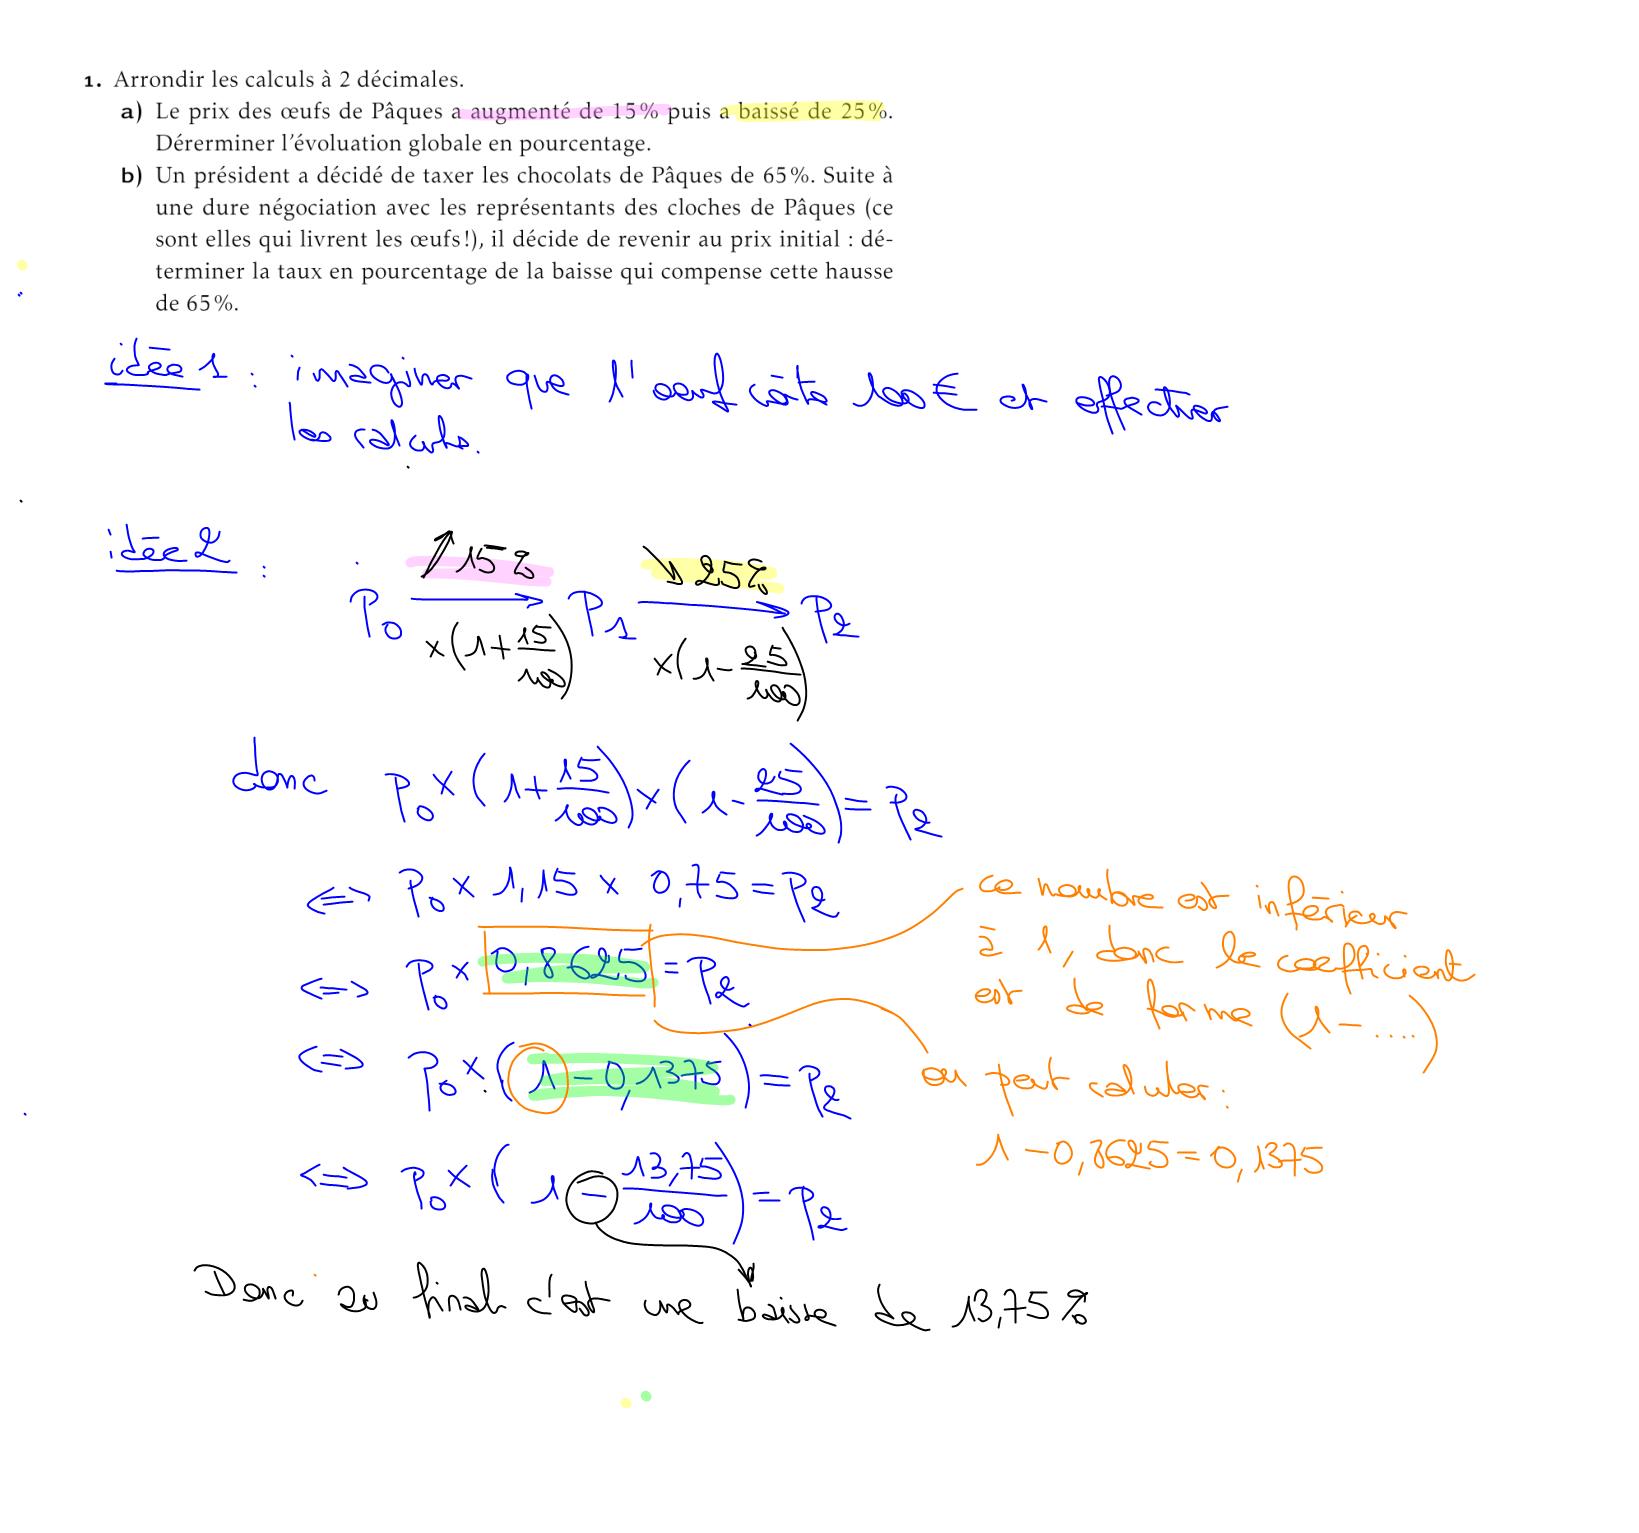 1. Arrondir les calculs à 2 décimales.
a) Le prix des œufs de Pâques a augmenté de 15% puis a baissé de 25%.
Dérerminer l'évolution globale en pourcentage.
b) Un président a décidé de taxer les chocolats de Pâques de 65%. Suite à
une dure négociation avec les représentants des cloches de Pâques (ce
sont elles qui livrent les œufs!), il décide de revenir au prix initial : dé-
terminer la taux en pourcentage de la baisse qui compense cette hausse
de 65%.
idée 1 : imaginer que l'oeuf coûte 100€ et effectuer
les calculs.
idée 2 :
↗ 15% ↘ 25%
P₀ → P₁ → P₂
×(1+15/100) ×(1-25/100)
donc P₀×(1+15/100)×(1-25/100)=P₂
<=> P₀×1,15×0,75=P₂
ce nombre est inférieur
à 1, donc le coefficient
est de forme (1-....)
<=> P₀×0,8625=P₂
<=> P₀×(1-0,1375)=P₂
on peut calculer:
1-0,8625=0,1375
<=> P₀×(1-13,75/100)=P₂
Donc au final c'est une baisse de 13,75%